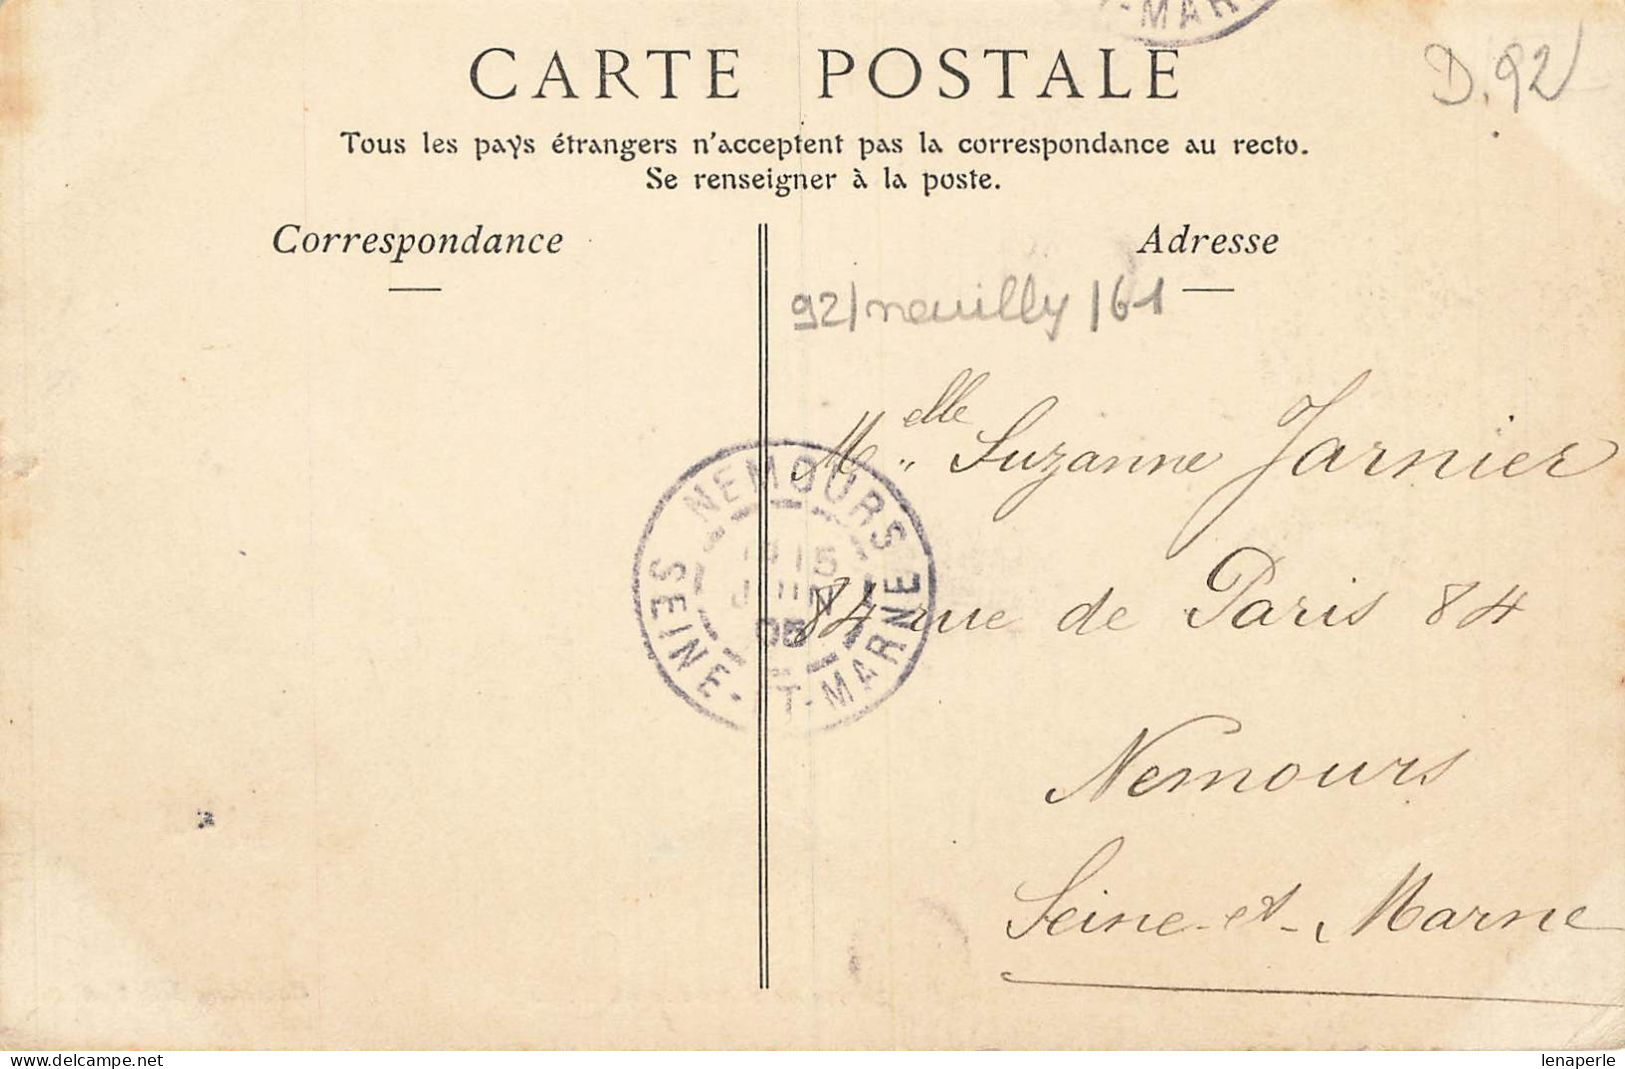 CARTE POSTALE
D.92
Tous les pays étrangers n'acceptent pas la correspondance au recto.
Se renseigner à la poste.
Correspondance
Adresse
92/neuilly/61
Melle Suzanne Jarnier
84 rue de Paris 84
Nemours
Seine-et-Marne
NEMOURS
15
JUIN
05
SEINE-ET-MARNE
www.delcampe.net
lenaperle